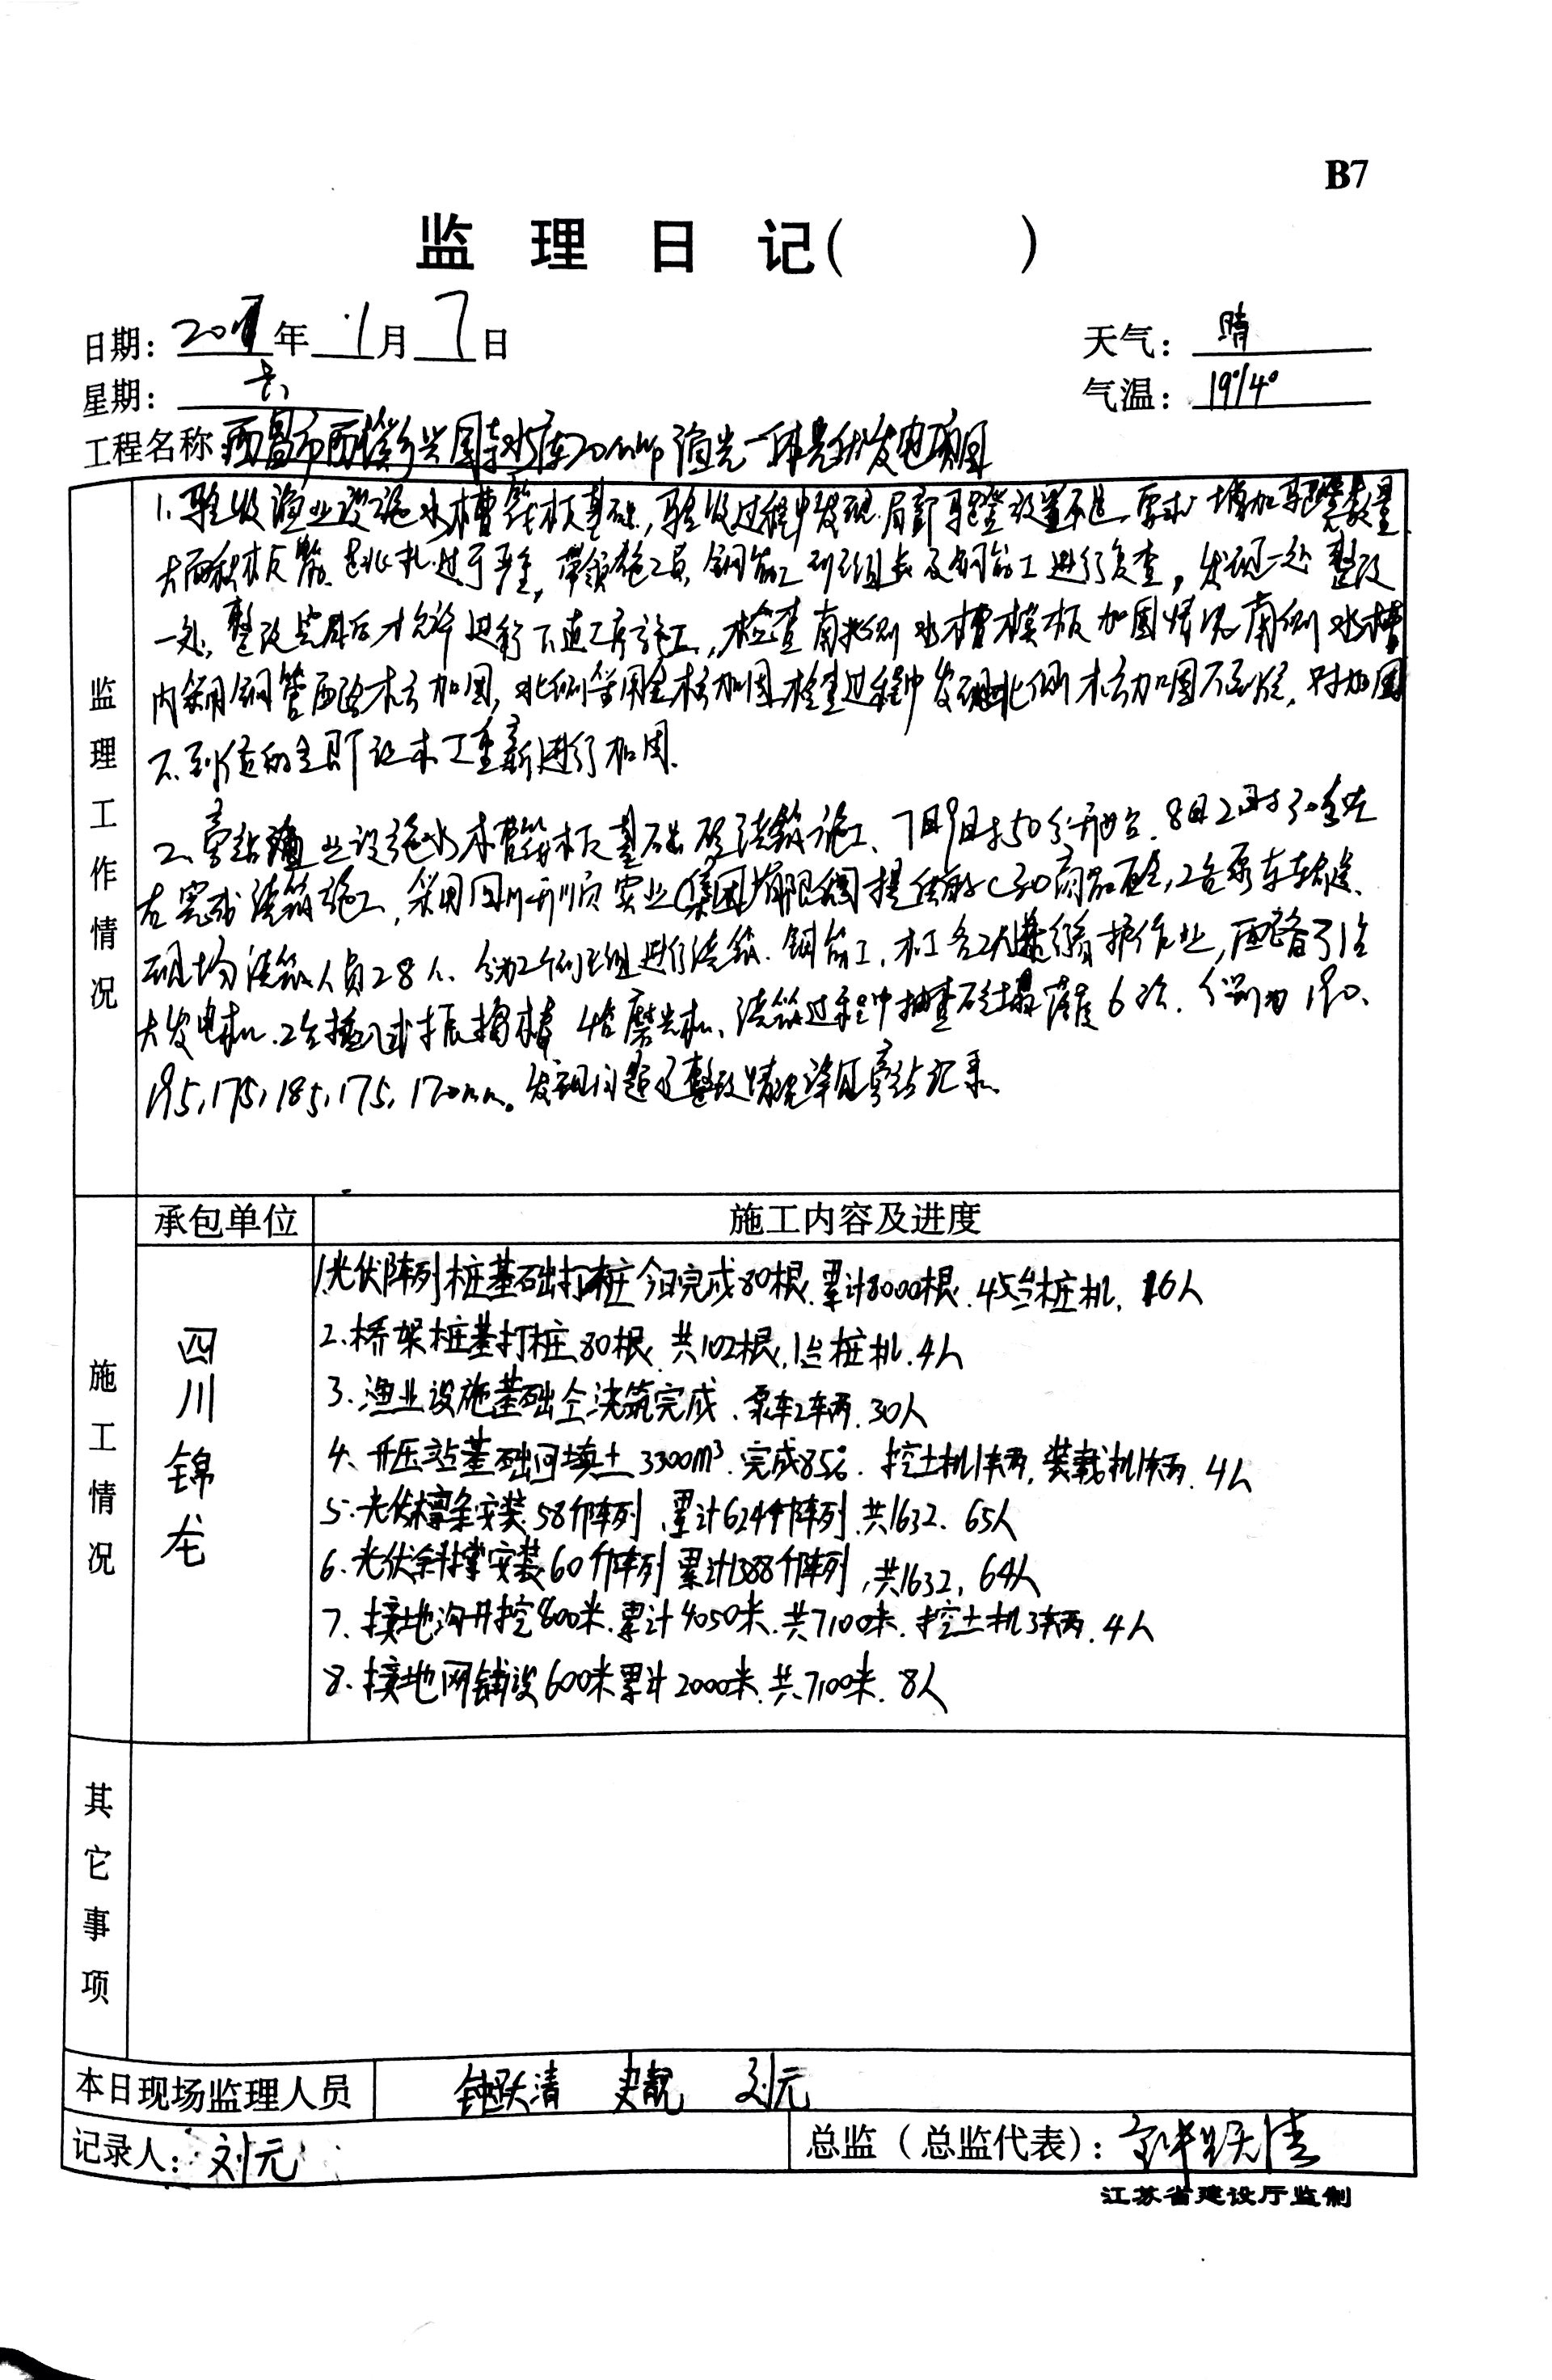 B7
监理日记( )
日期: 2017年 1月 7日
天气: 晴
星期: 六
气温: 19°/4°
工程名称 西昌市西溪乡兴国寺水库20MWp渔光一体光伏发电项目
监理工作情况
1、验收渔业设施水槽筏板基础,验收过程中发现局部马凳设置不足,要求增加马凳数量,
大面积板筋 跳扎过于严重,带领施工员、钢筋工班组长及钢筋工进行复查,发现一处整改
一处,整改完毕后才允许进行下道工序施工,检查南北侧水槽模板加固情况南侧水槽
内采用钢管配合木方加固,北侧采用全木方加固,检查过程中发现北侧木方加固不到位,对加固
不到位的立即让木工重新进行加固.
2、旁站渔业设施水槽筏板基础砼浇筑施工、7日9时50分开始,8日2时30分左
右完成浇筑施工,采用四川 实业(集团)有限公司提供的C30商品砼,2台泵车输送、
现场浇筑人员28人、分为2个班组进行浇筑.钢筋工,木工各2人 护作业,配备了1台
大发电机.2台插入式振捣棒 4台磨光机、浇筑过程中抽查砼坍落度6次.分别为190、
195,175,185,175,170mm。发现问题及整改情况详见旁站记录.
承包单位 施工内容及进度
施工情况
四川锦龙
1.光伏阵列桩基础打桩今日完成80根.累计8000根.45台桩机,16人
2.桥架桩基打桩80根.共102根,1台桩机.4人
3.渔业设施基础仝浇筑完成.泵车2辆.30人
4、升压站基础回填土3300m³.完成85%.挖土机1辆,装载机1辆.4人
5.光伏檩条安装.58个阵列,累计624个阵列.共1632.65人
6.光伏斜撑安装60个阵列累计1388个阵列,共1632,64人
7、接地沟开挖800米.累计4050米.共7100米.挖土机3辆.4人
8.接地网铺设600米累计2000米.共7100米.8人
其它事项
本日现场监理人员 钟跃清 史靓 刘元
记录人: 刘元 总监(总监代表): 钟跃清
江苏省建设厅监制